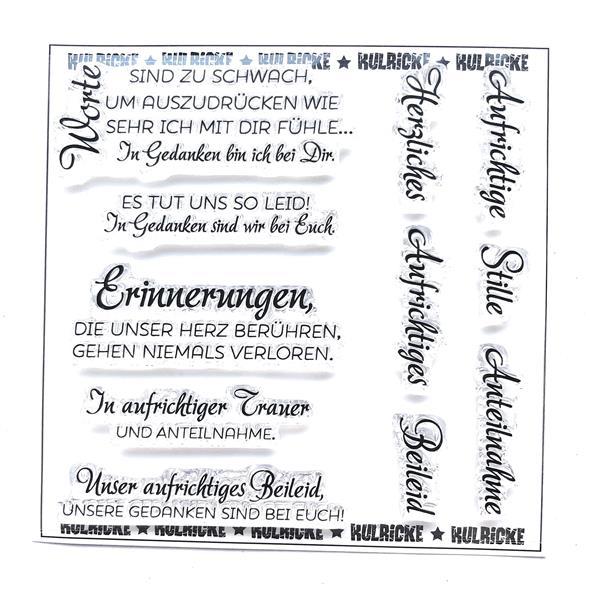 KULRICKE ★ KULRICKE ★ KULRICKE ★ KULRICKE ★ KULRICKE
Worte
SIND ZU SCHWACH,
UM AUSZUDRÜCKEN WIE
SEHR ICH MIT DIR FÜHLE...
In Gedanken bin ich bei Dir.
ES TUT UNS SO LEID!
In Gedanken sind wir bei Euch.
Erinnerungen,
DIE UNSER HERZ BERÜHREN,
GEHEN NIEMALS VERLOREN.
In aufrichtiger Trauer
UND ANTEILNAHME.
Unser aufrichtiges Beileid,
UNSERE GEDANKEN SIND BEI EUCH!
Herzliches
Aufrichtiges
Beileid
Aufrichtige
Stille
Anteilnahme
KULRICKE ★ KULRICKE ★ KULRICKE ★ KULRICKE ★ KULRICKE